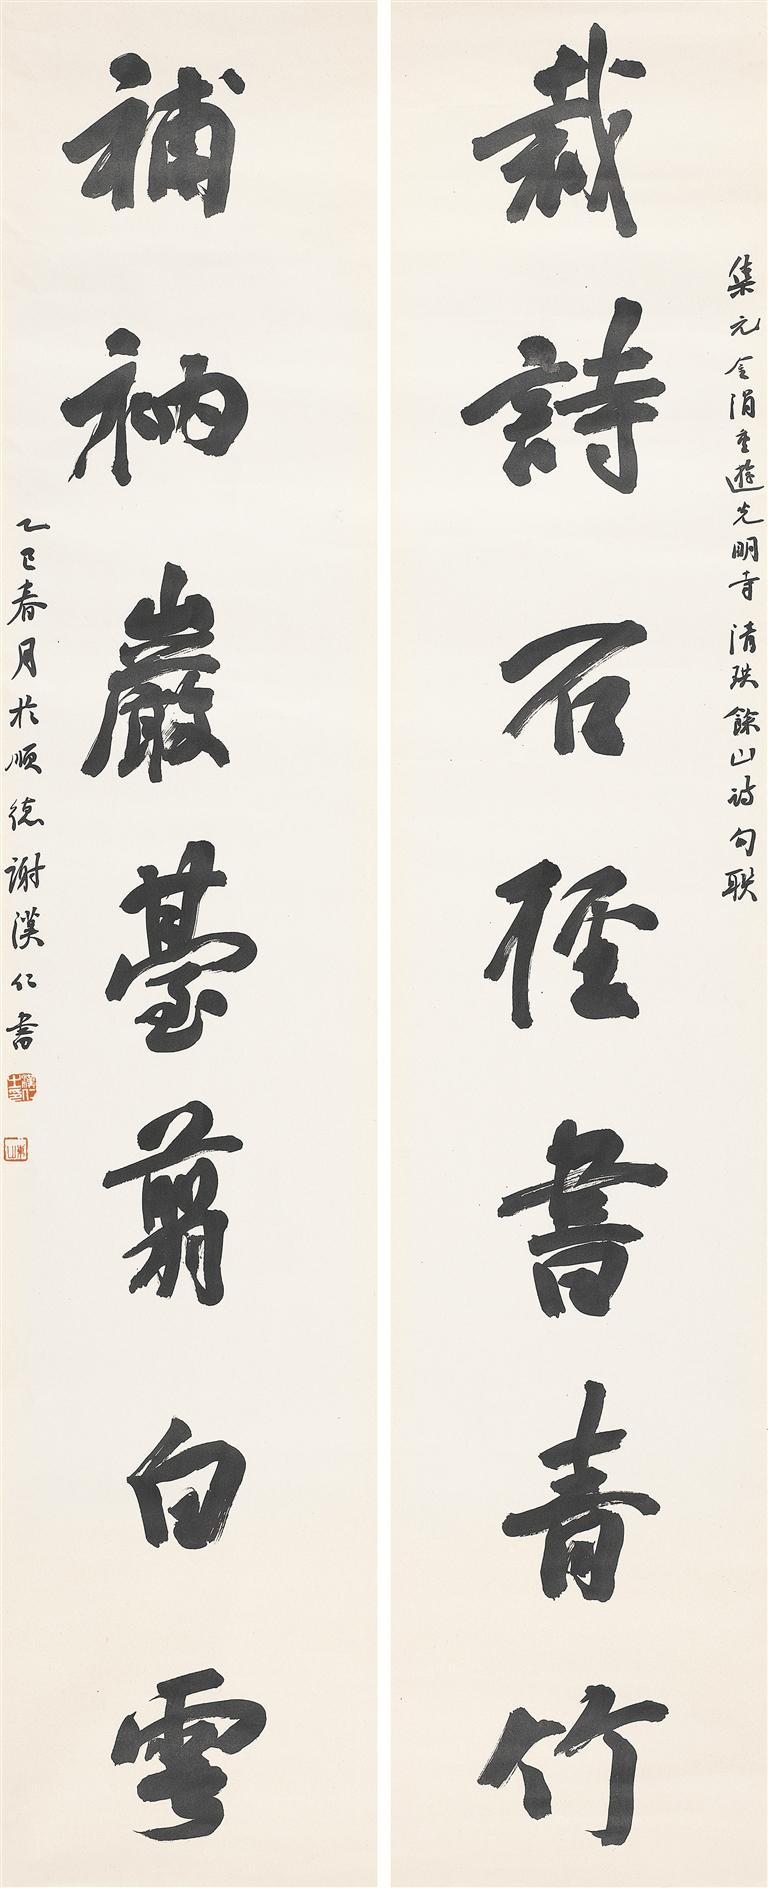 裁詩石徑書青竹
集元金涓重遊光明寺清珙餘山詩句联
補衲巖臺剪白雲
乙巳春月於順德謝漢仁書